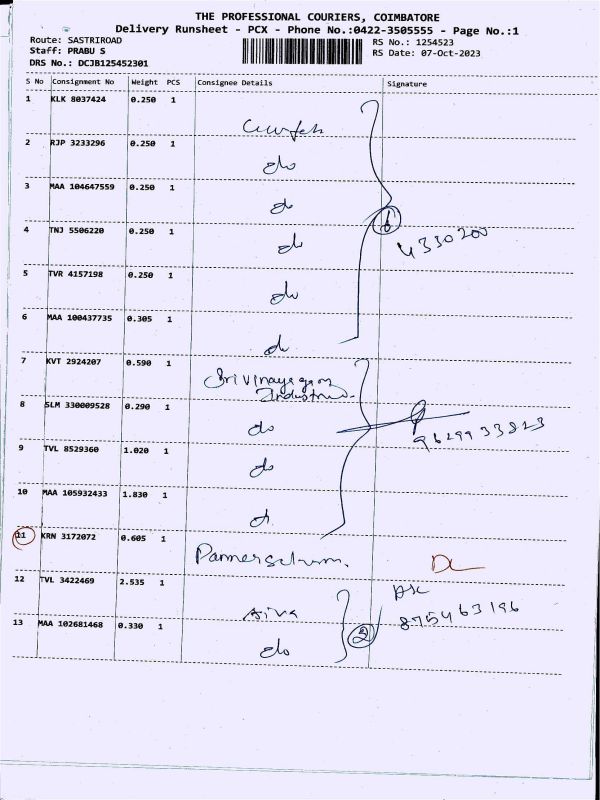 THE PROFESSIONAL COURIERS, COIMBATORE
Delivery Runsheet - PCX - Phone No.:0422-3505555 - Page No.:1
Route: SASTRIROAD
Staff: PRABU S
DRS No.: DCJB125452301
RS No.: 1254523
RS Date: 07-Oct-2023
S No Consignment No Weight PCS Consignee Details Signature
1 KLK 8037424 0.250 1
2 RJP 3233296 0.250 1 do
3 MAA 104647559 0.250 1 do
4 TNJ 5506220 0.250 1 do
6 4330200
5 TVR 4157198 0.250 1 do
6 MAA 100437735 0.305 1 do
7 KVT 2924207 0.590 1 Sri Vinayagam
Industries
8 SLM 330009528 0.290 1 do
9629933823
9 TVL 8529360 1.020 1 do
10 MAA 105932433 1.830 1 do
11 KRN 3172072 0.605 1
12 TVL 3422469 2.535 1 Siva
875463196
13 MAA 102681468 0.330 1 do 2